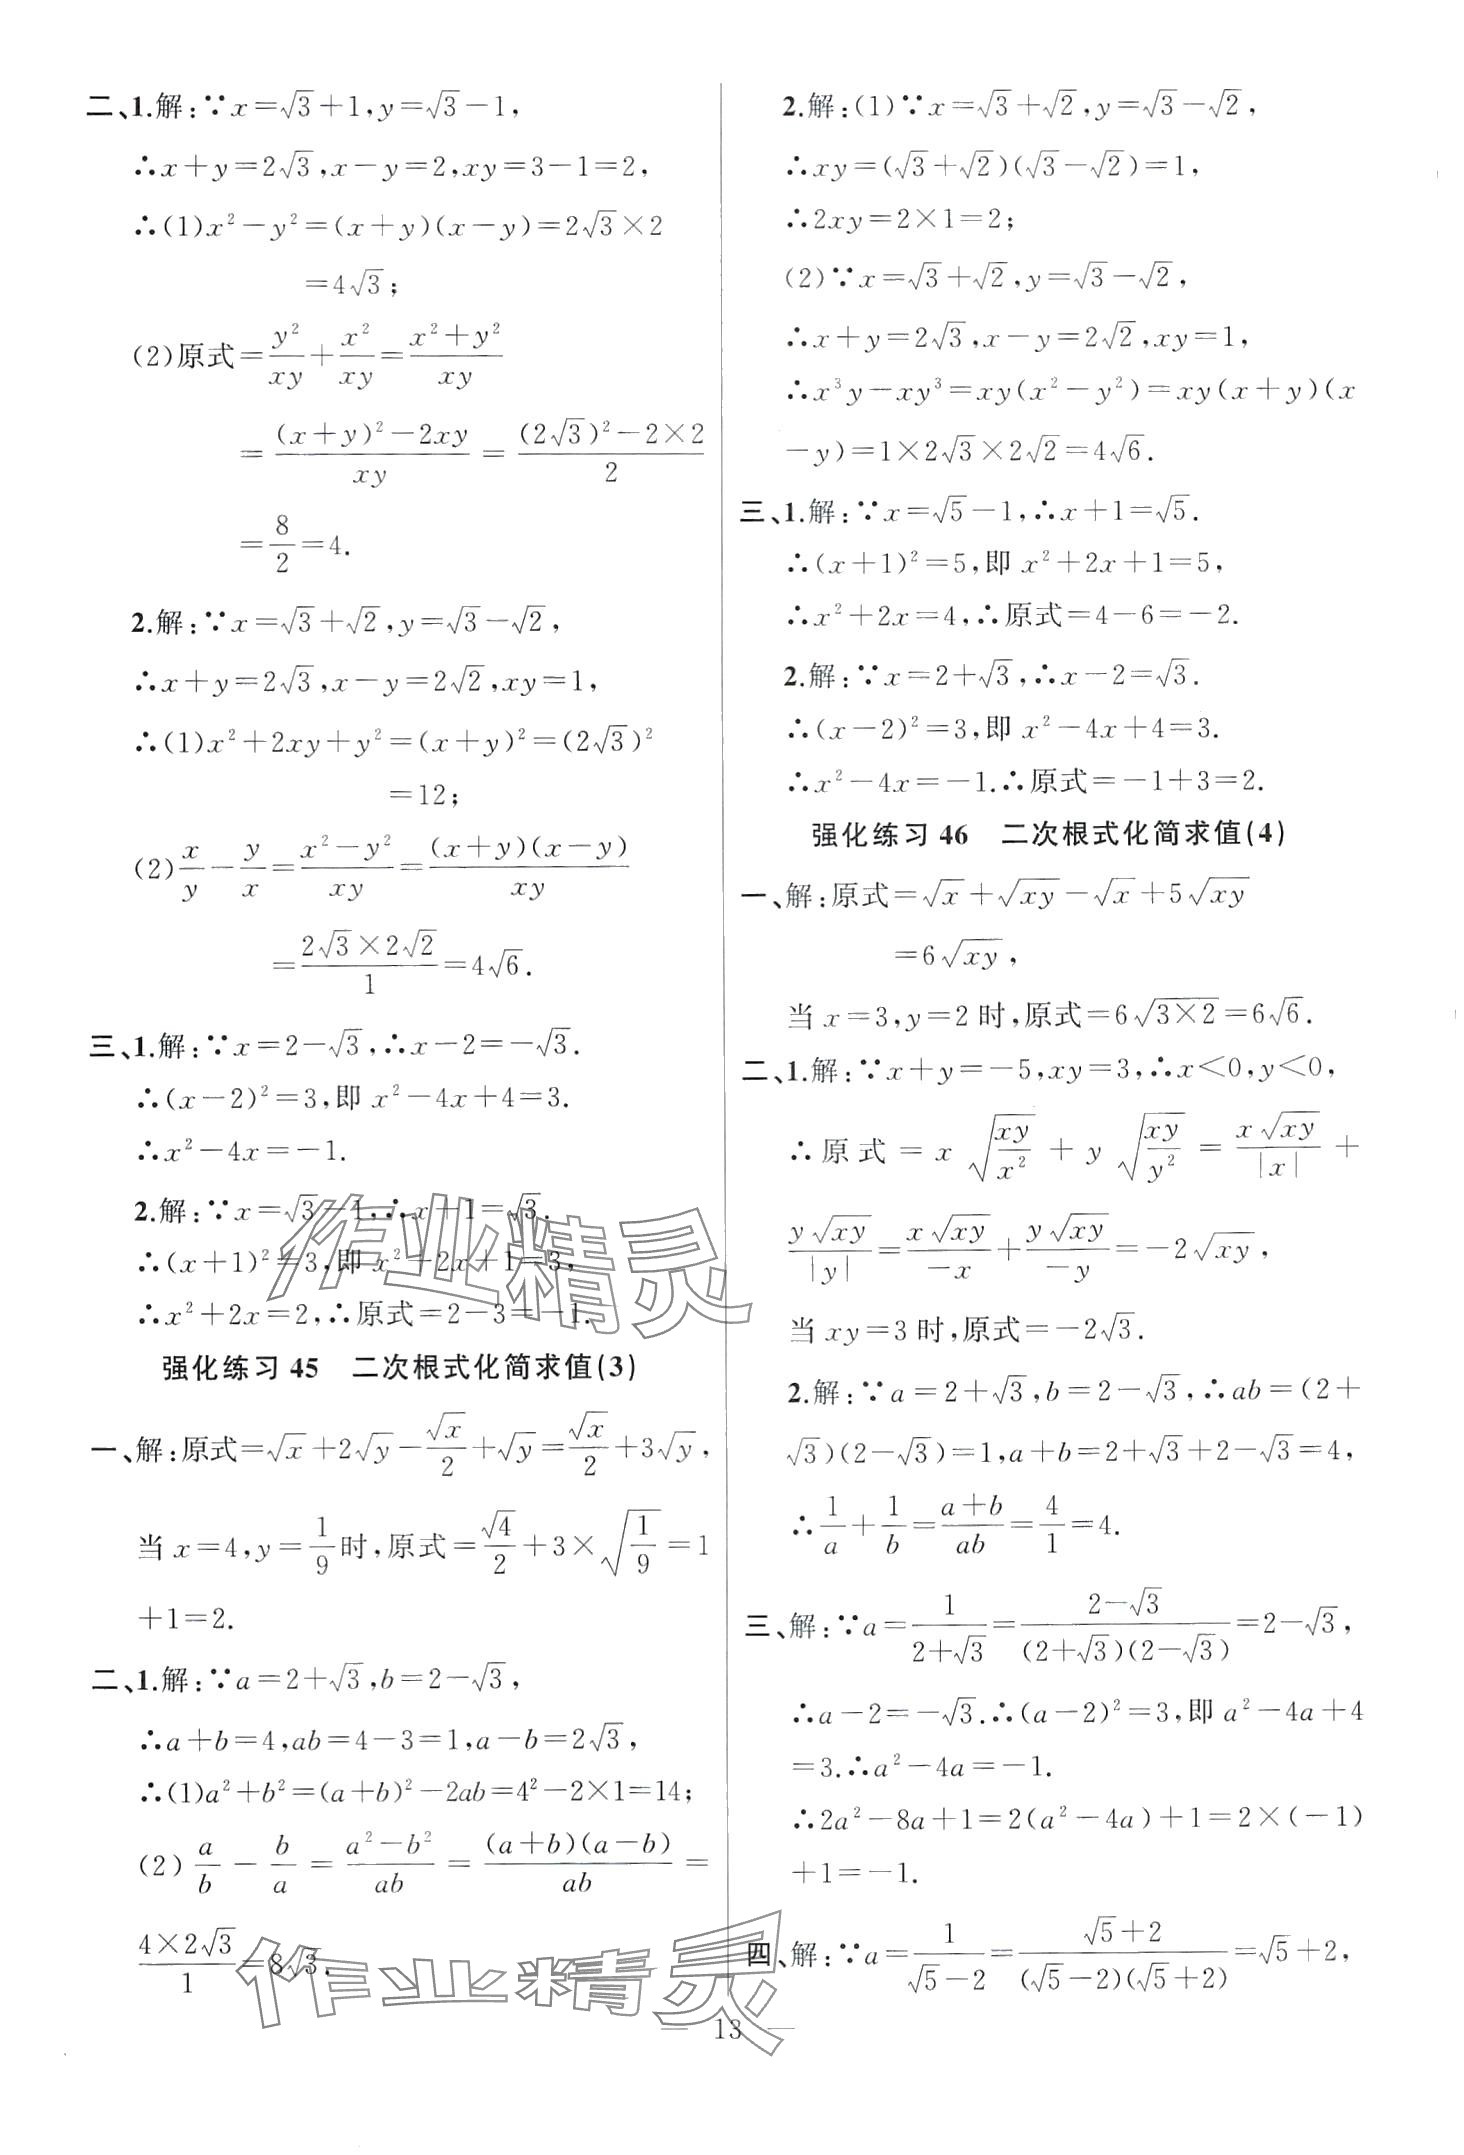 二、1.解:∵x=√3+1,y=√3-1,
∴x+y=2√3,x-y=2,xy=3-1=2,
∴(1)x²-y²=(x+y)(x-y)=2√3×2
=4√3;
(2)原式=y²/xy+x²/xy=(x²+y²)/xy
=((x+y)²-2xy)/xy=((2√3)²-2×2)/2
=8/2=4.
2.解:∵x=√3+√2,y=√3-√2,
∴x+y=2√3,x-y=2√2,xy=1,
∴(1)x²+2xy+y²=(x+y)²=(2√3)²
=12;
(2)x/y-y/x=(x²-y²)/xy=(x+y)(x-y)/xy
=(2√3×2√2)/1=4√6.
三、1.解:∵x=2-√3,∴x-2=-√3.
∴(x-2)²=3,即x²-4x+4=3.
∴x²-4x=-1.
2.解:∵x=√3-1,∴x+1=√3.
∴(x+1)²=3,即x²+2x+1=3,
∴x²+2x=2,∴原式=2-3=-1.
强化练习45 二次根式化简求值(3)
一、解:原式=√x+2√y-√x/2+√y=√x/2+3√y,
当x=4,y=1/9时,原式=√4/2+3×√(1/9)=1
+1=2.
二、1.解:∵a=2+√3,b=2-√3,
∴a+b=4,ab=4-3=1,a-b=2√3,
∴(1)a²+b²=(a+b)²-2ab=4²-2×1=14;
(2)a/b-b/a=(a²-b²)/ab=(a+b)(a-b)/ab=
(4×2√3)/1=8√3.
2.解:(1)∵x=√3+√2,y=√3-√2,
∴xy=(√3+√2)(√3-√2)=1,
∴2xy=2×1=2;
(2)∵x=√3+√2,y=√3-√2,
∴x+y=2√3,x-y=2√2,xy=1,
∴x³y-xy³=xy(x²-y²)=xy(x+y)(x
-y)=1×2√3×2√2=4√6.
三、1.解:∵x=√5-1,∴x+1=√5.
∴(x+1)²=5,即x²+2x+1=5,
∴x²+2x=4,∴原式=4-6=-2.
2.解:∵x=2+√3,∴x-2=√3.
∴(x-2)²=3,即x²-4x+4=3.
∴x²-4x=-1.∴原式=-1+3=2.
强化练习46 二次根式化简求值(4)
一、解:原式=√x+√xy-√x+5√xy
=6√xy,
当x=3,y=2时,原式=6√(3×2)=6√6.
二、1.解:∵x+y=-5,xy=3,∴x<0,y<0,
∴原式=x√(xy/x²)+y√(xy/y²)=x√xy/|x|+
y√xy/|y|=x√xy/-x+y√xy/-y=-2√xy,
当xy=3时,原式=-2√3.
2.解:∵a=2+√3,b=2-√3,∴ab=(2+
√3)(2-√3)=1,a+b=2+√3+2-√3=4,
∴1/a+1/b=(a+b)/ab=4/1=4.
三、解:∵a=1/(2+√3)=(2-√3)/((2+√3)(2-√3))=2-√3,
∴a-2=-√3.∴(a-2)²=3,即a²-4a+4
=3.∴a²-4a=-1.
∴2a²-8a+1=2(a²-4a)+1=2×(-1)
+1=-1.
四、解:∵a=1/(√5-2)=(√5+2)/((√5-2)(√5+2))=√5+2,
— 13 —
作业精灵
作业精灵